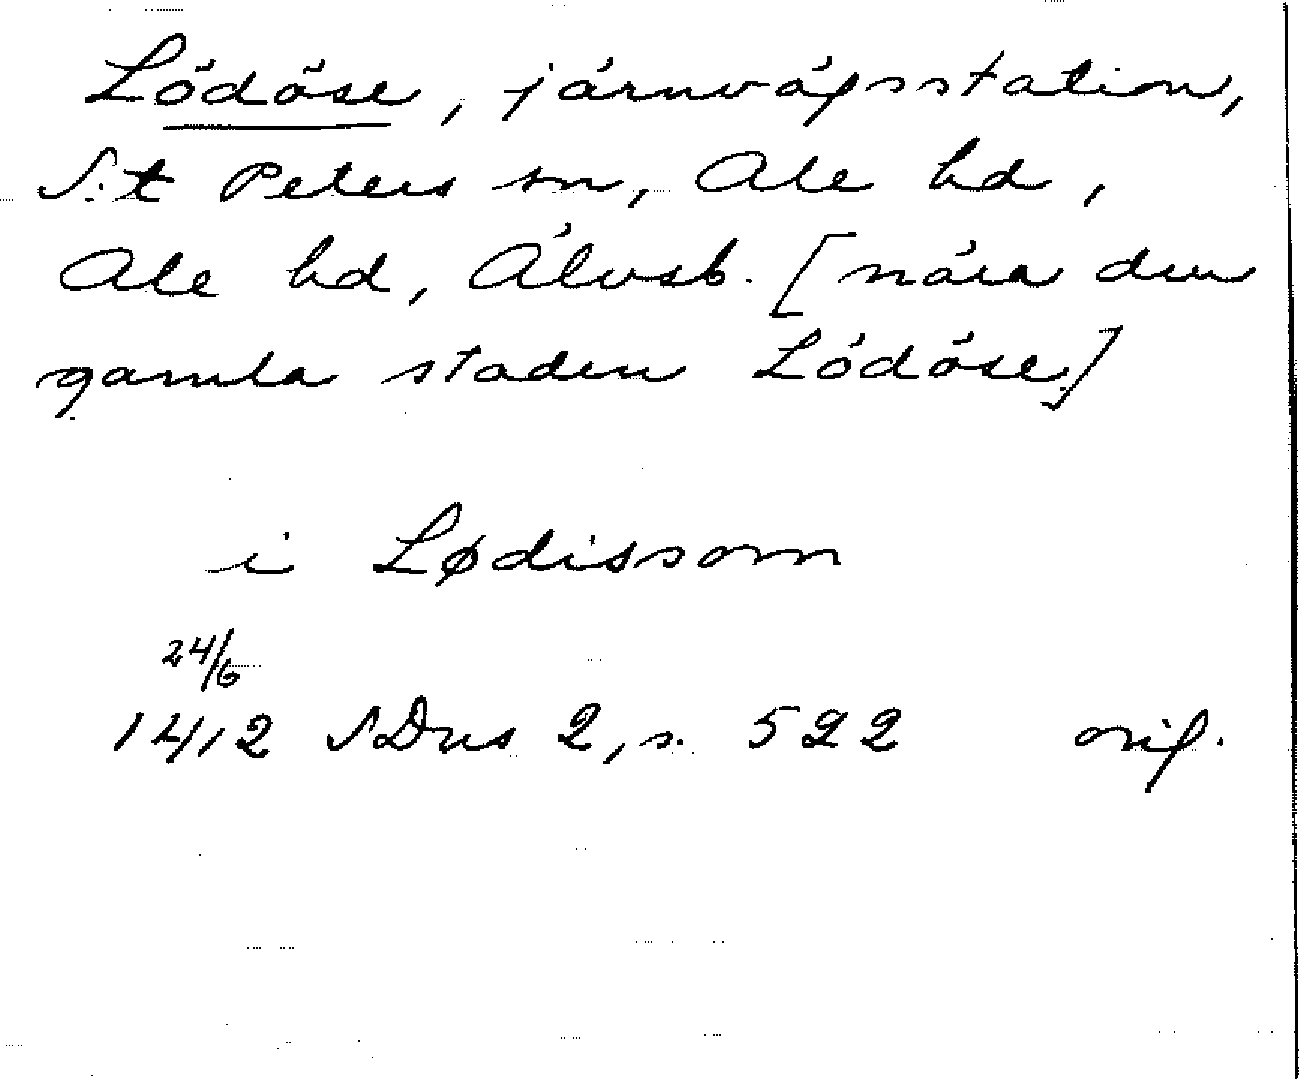 Lödöse, järnvägsstation,
S:t Peters sn, Ale hd,
Ale hd, Älvsb. [nära den
gamla staden Lödöse.]
i Lødissom
24/6
1412 SDns 2, s. 522 orig.